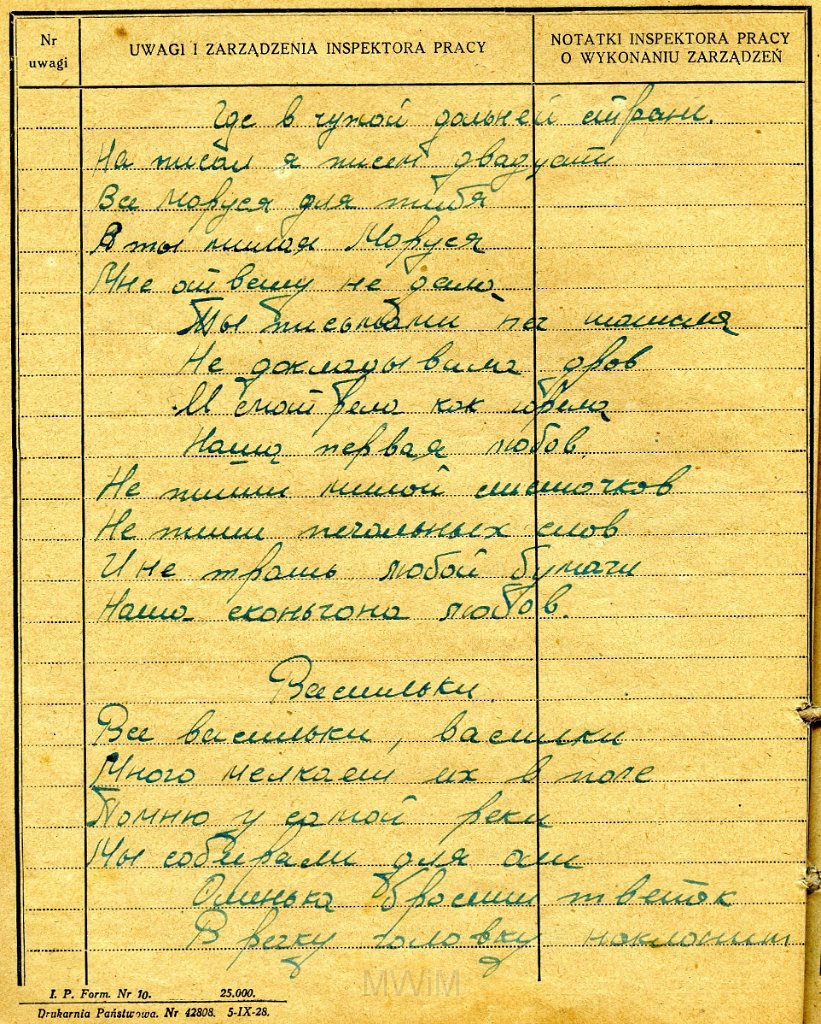 Nr
uwagi
UWAGI I ZARZĄDZENIA INSPEKTORA PRACY
NOTATKI INSPEKTORA PRACY
O WYKONANIU ZARZĄDZEŃ
Где в чужой дольней страни.
На писал я писем двадцати
Все Маруся для тибя
А ты милая Маруся
Мне атвету не дала
Ты письмами печ
Не докладывала дров
И смотрела как горела
Наша первая любов
Не пиши милой листочков
Не пиши печальных слов
И не трашь любой бумаги
Наша сконьчона любов.
Васильки
Все васильки, василки
Много мелкает их в поле
Помню у самой реки
Мы собирали для оли
Олинька бросит тветок
В речку головку наклонит
MWiM
I. P. Form. Nr 10. 25.000.
Drukarnia Państwowa. Nr 42808. 5-IX-28.